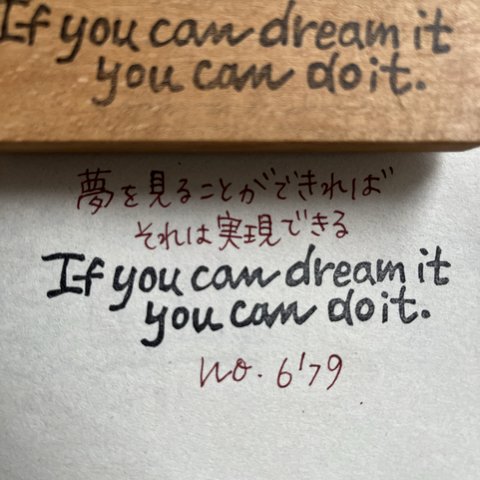 If you can dream it
you can do it.
夢を見ることができれば
それは実現できる
If you can dream it
you can do it.
no. 6'79